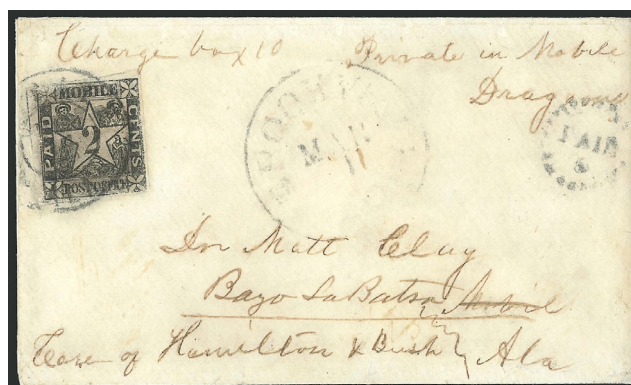 Charge box 10 Private in Mobile
Dragoons
MOBILE
PAID 2 CENTS
POST OFFICE
MAR
11
PAID
Dr Matt Clay
Bayo La Batra Mobile
Care of Hamilton & Bush Ala